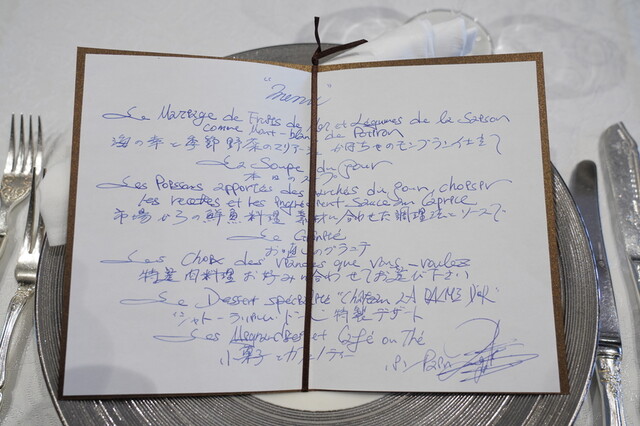 "Menu"
Le Mariage de Fruits de Mer et Légumes de la Saison
comme Mont-blanc de Potiron
海の幸と季節野菜のマリアージュ かぼちゃのモンブラン仕立て
La Soupe du jour
本日のスープ
Les Poissons apportés des marchés du jour, choisir
les recettes et les Sauce au Caprice
市場からの鮮魚料理 素材に合わせた調理法とソースで
Le Granité
お口直しのグラニテ
Les Choix des Viandes que vous voulez
特選肉料理 お好みに合わせてお選び下さい
Le Dessert spécialité "Château
シャトー 特製デザート
Les Mignardises et Café ou Thé
小菓子とカフェ・ティー